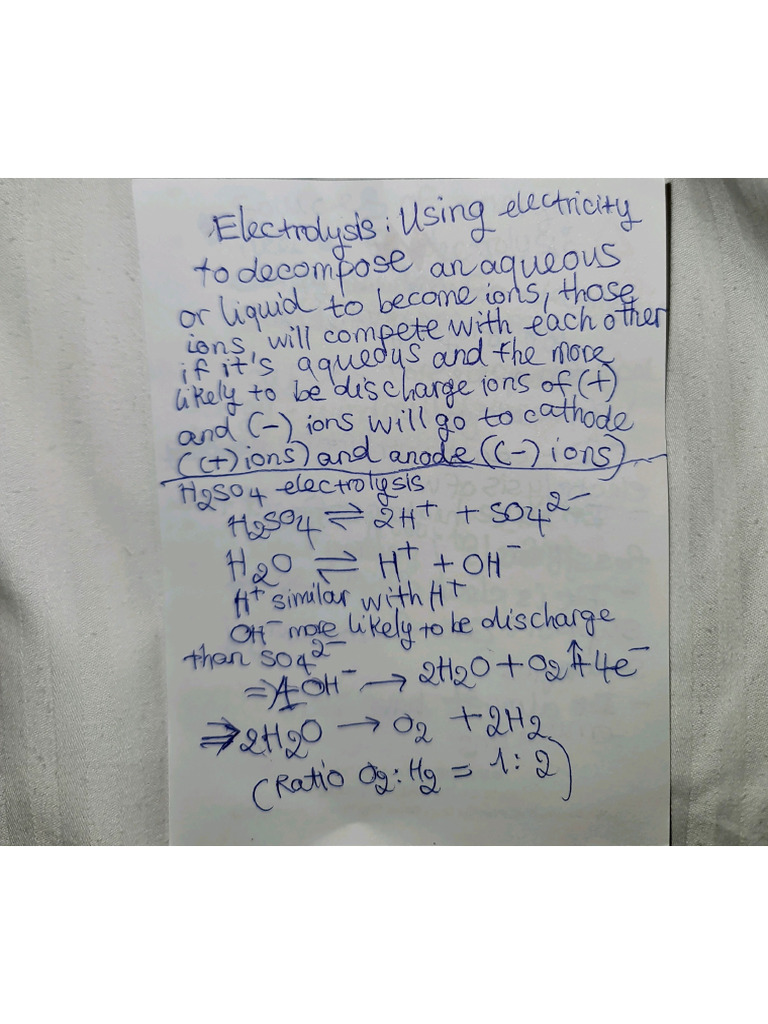 Electrolysis: Using electricity
to decompose an aqueous
or liquid to become ions, those
ions will compete with each other
if it's aqueous and the more
likely to be discharge ions of (+)
and (-) ions will go to cathode
((+) ions) and anode ((-) ions)
H2SO4 electrolysis
H2SO4 ⇌ 2H+ + SO4 2-
H2O ⇌ H+ + OH-
H+ similar with H+
OH- more likely to be discharge
than SO4 2-
=> 4OH- → 2H2O + O2↑ + 4e-
=> 2H2O → O2 + 2H2
(Ratio O2 : H2 = 1 : 2)